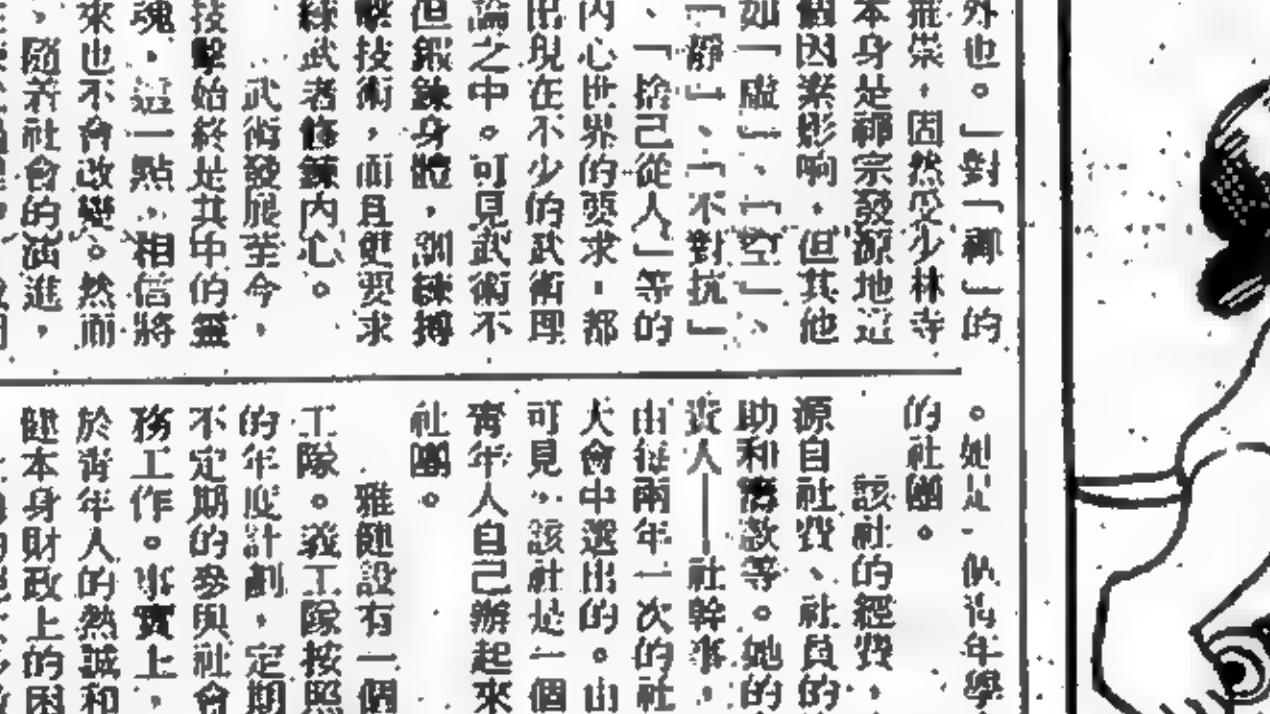 外也。」對「禪」的
推崇，固然受少林寺
本身是禪宗發源地這
個因素影响，但其他
如「虛」、「空」、
「靜」、「不對抗」
、「捨己從人」等的
內心世界的要求，都
出現在不少的武術理
論之中。可見武術不
但鍛鍊身體，訓練搏
擊技術，而且更要求
練武者修鍊內心。
武術發展至今，
技擊始終是其中的靈
魂，這一點，相信將
來也不會改變。然而
，隨着社會的演進，
。她是一個青年學
的社團。
該社的經費，
源自社費、社員的
助和捐款等。她的
責人——社幹事，
由每兩年一次的社
大會中選出的。由
可見，該社是一個
青年人自己辦起來
社團。
雅健設有一個
工隊。義工隊按照
的年度計劃，定期
不定期的參與社會
務工作。事實上，
於青年人的熱誠和
健本身財政上的困